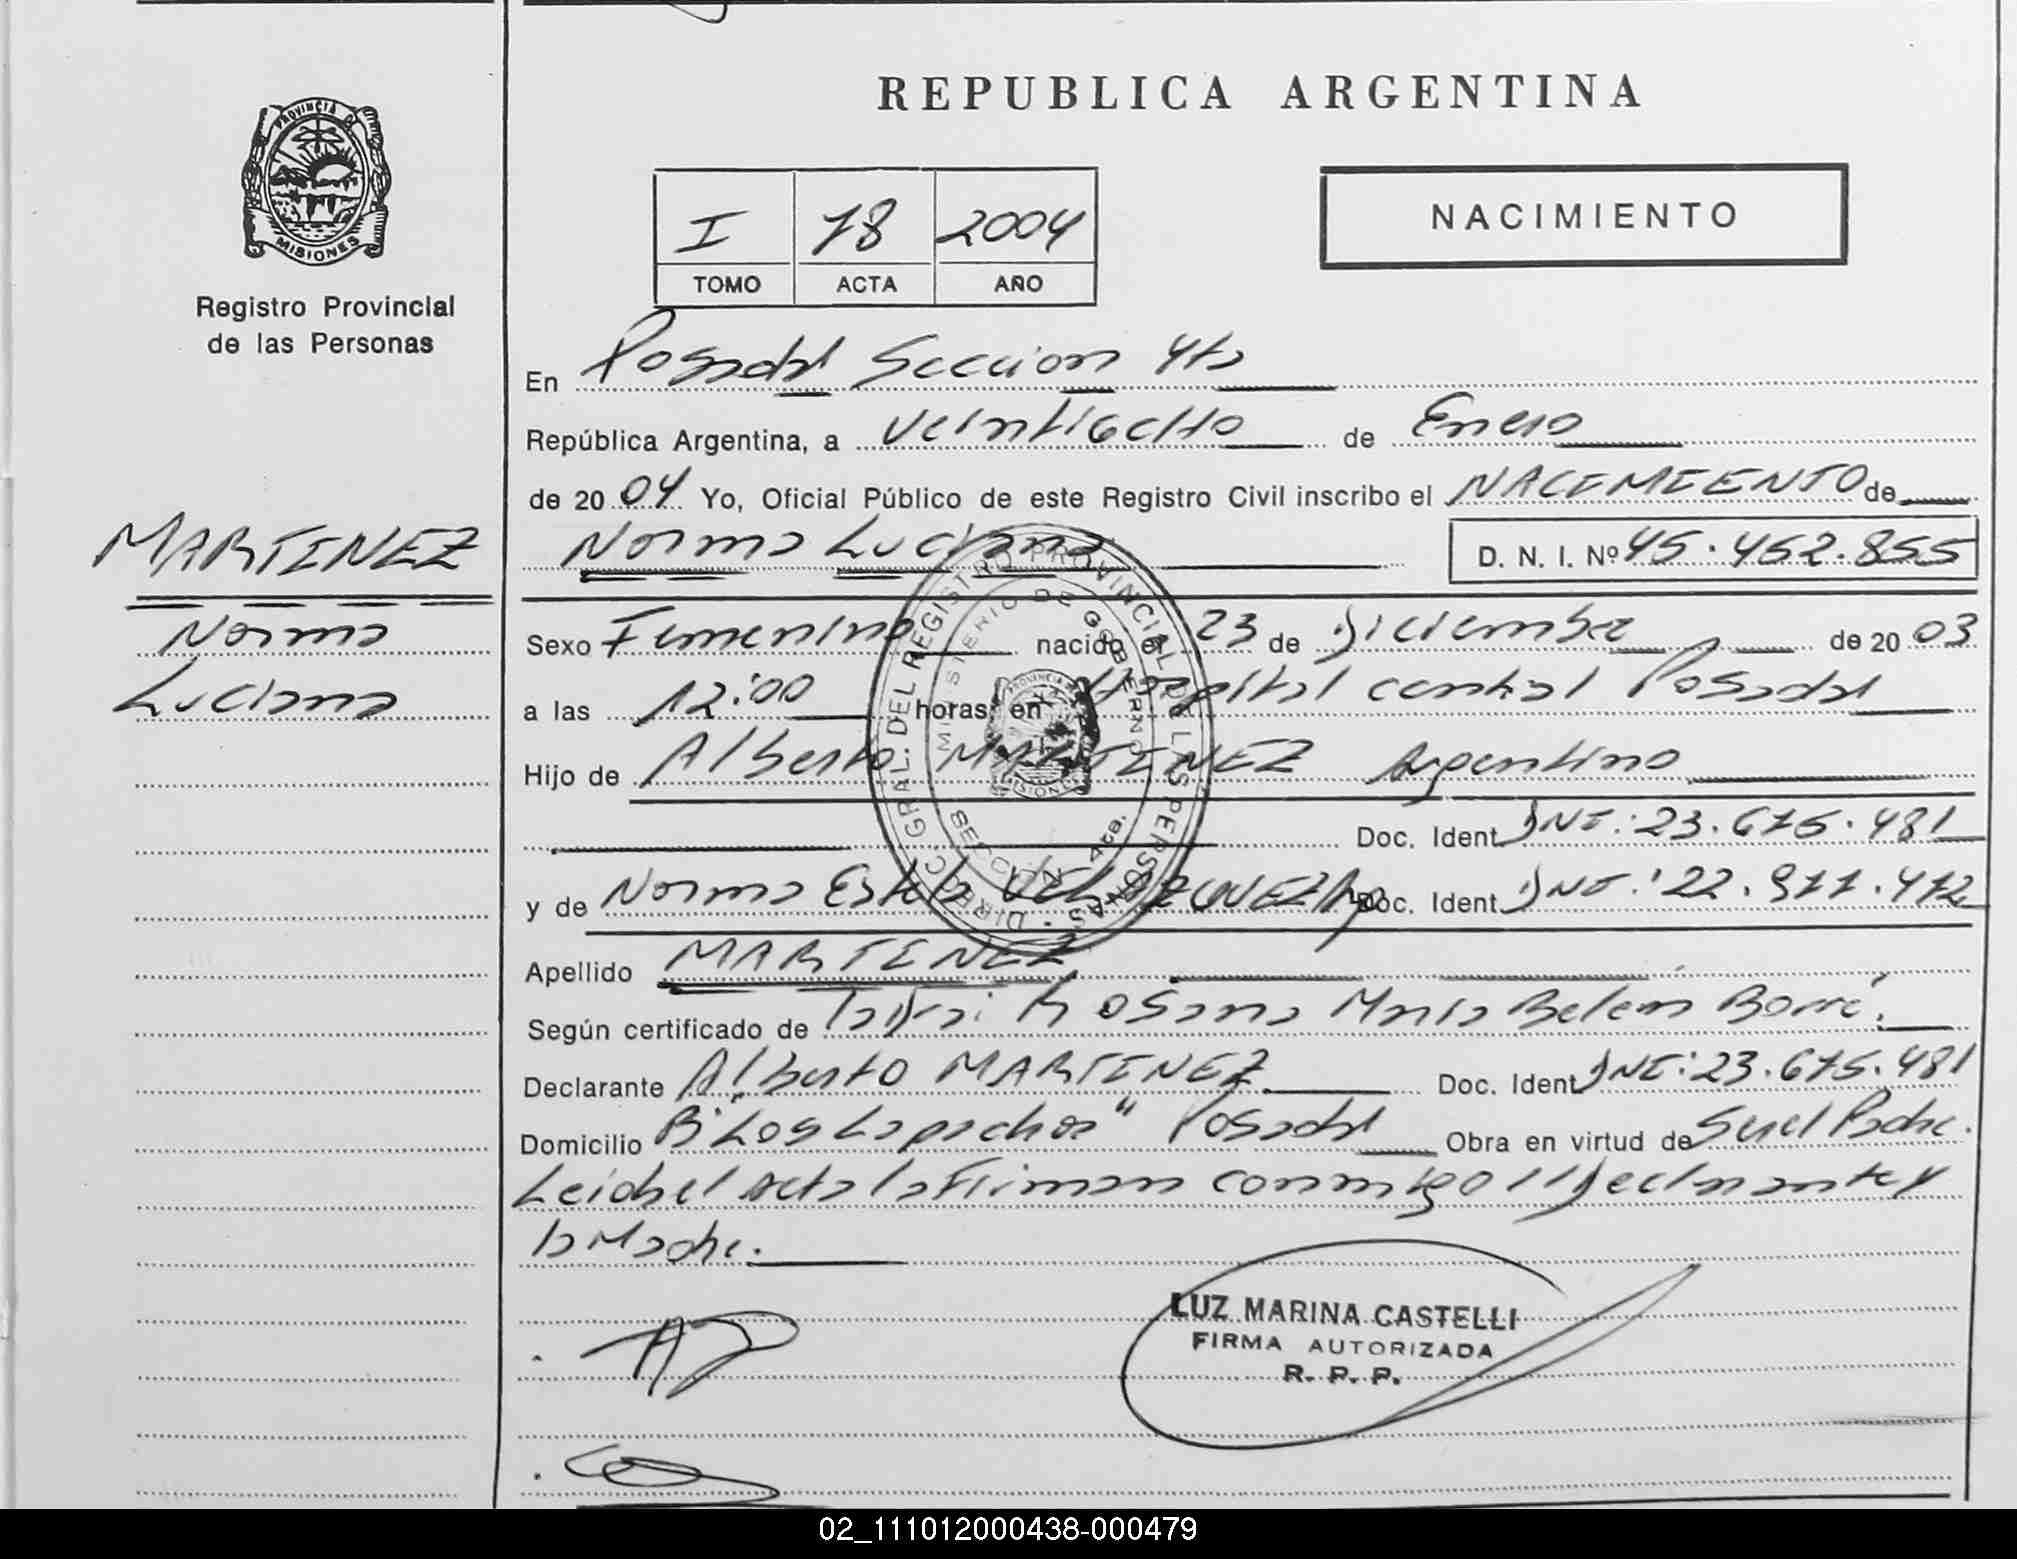 REPUBLICA ARGENTINA
PROVINCIA DE
MISIONES
Registro Provincial
de las Personas
I 78 2004
TOMO ACTA AÑO
NACIMIENTO
En Posadas Seccion 4ta
República Argentina, a veintiocho de Enero
de 2004 Yo, Oficial Público de este Registro Civil inscribo el NACIMIENTO de
MARTINEZ
Norma
Luciana
Norma Luciana
D. N. I. Nº 45.452.855
Sexo Femenino nacido el 23 de Diciembre de 2003
a las 12:00 horas en Hospital central Posadas
Hijo de Alberto MARTINEZ Argentino
Doc. Ident. DNI: 23.675.481
y de Norma Estela VELAZQUEZ Doc. Ident. DNI: 22.911.472
Apellido MARTINEZ
Según certificado de Rosana Maria Belem Borré.
Declarante Alberto MARTINEZ Doc. Ident. DNI: 23.675.481
Domicilio B° "Los Lapachos" Posadas Obra en virtud de Ser el Padre.
Leida el acta la Firman conmigo el Declarante y
la Madre.
DIRECC. GRAL. DEL REGISTRO PROVINCIAL DE LAS PERSONAS
MINISTERIO DE GOBIERNO
SECCION 4ta.
LUZ MARINA CASTELLI
FIRMA AUTORIZADA
R. P. P.
02_111012000438-000479